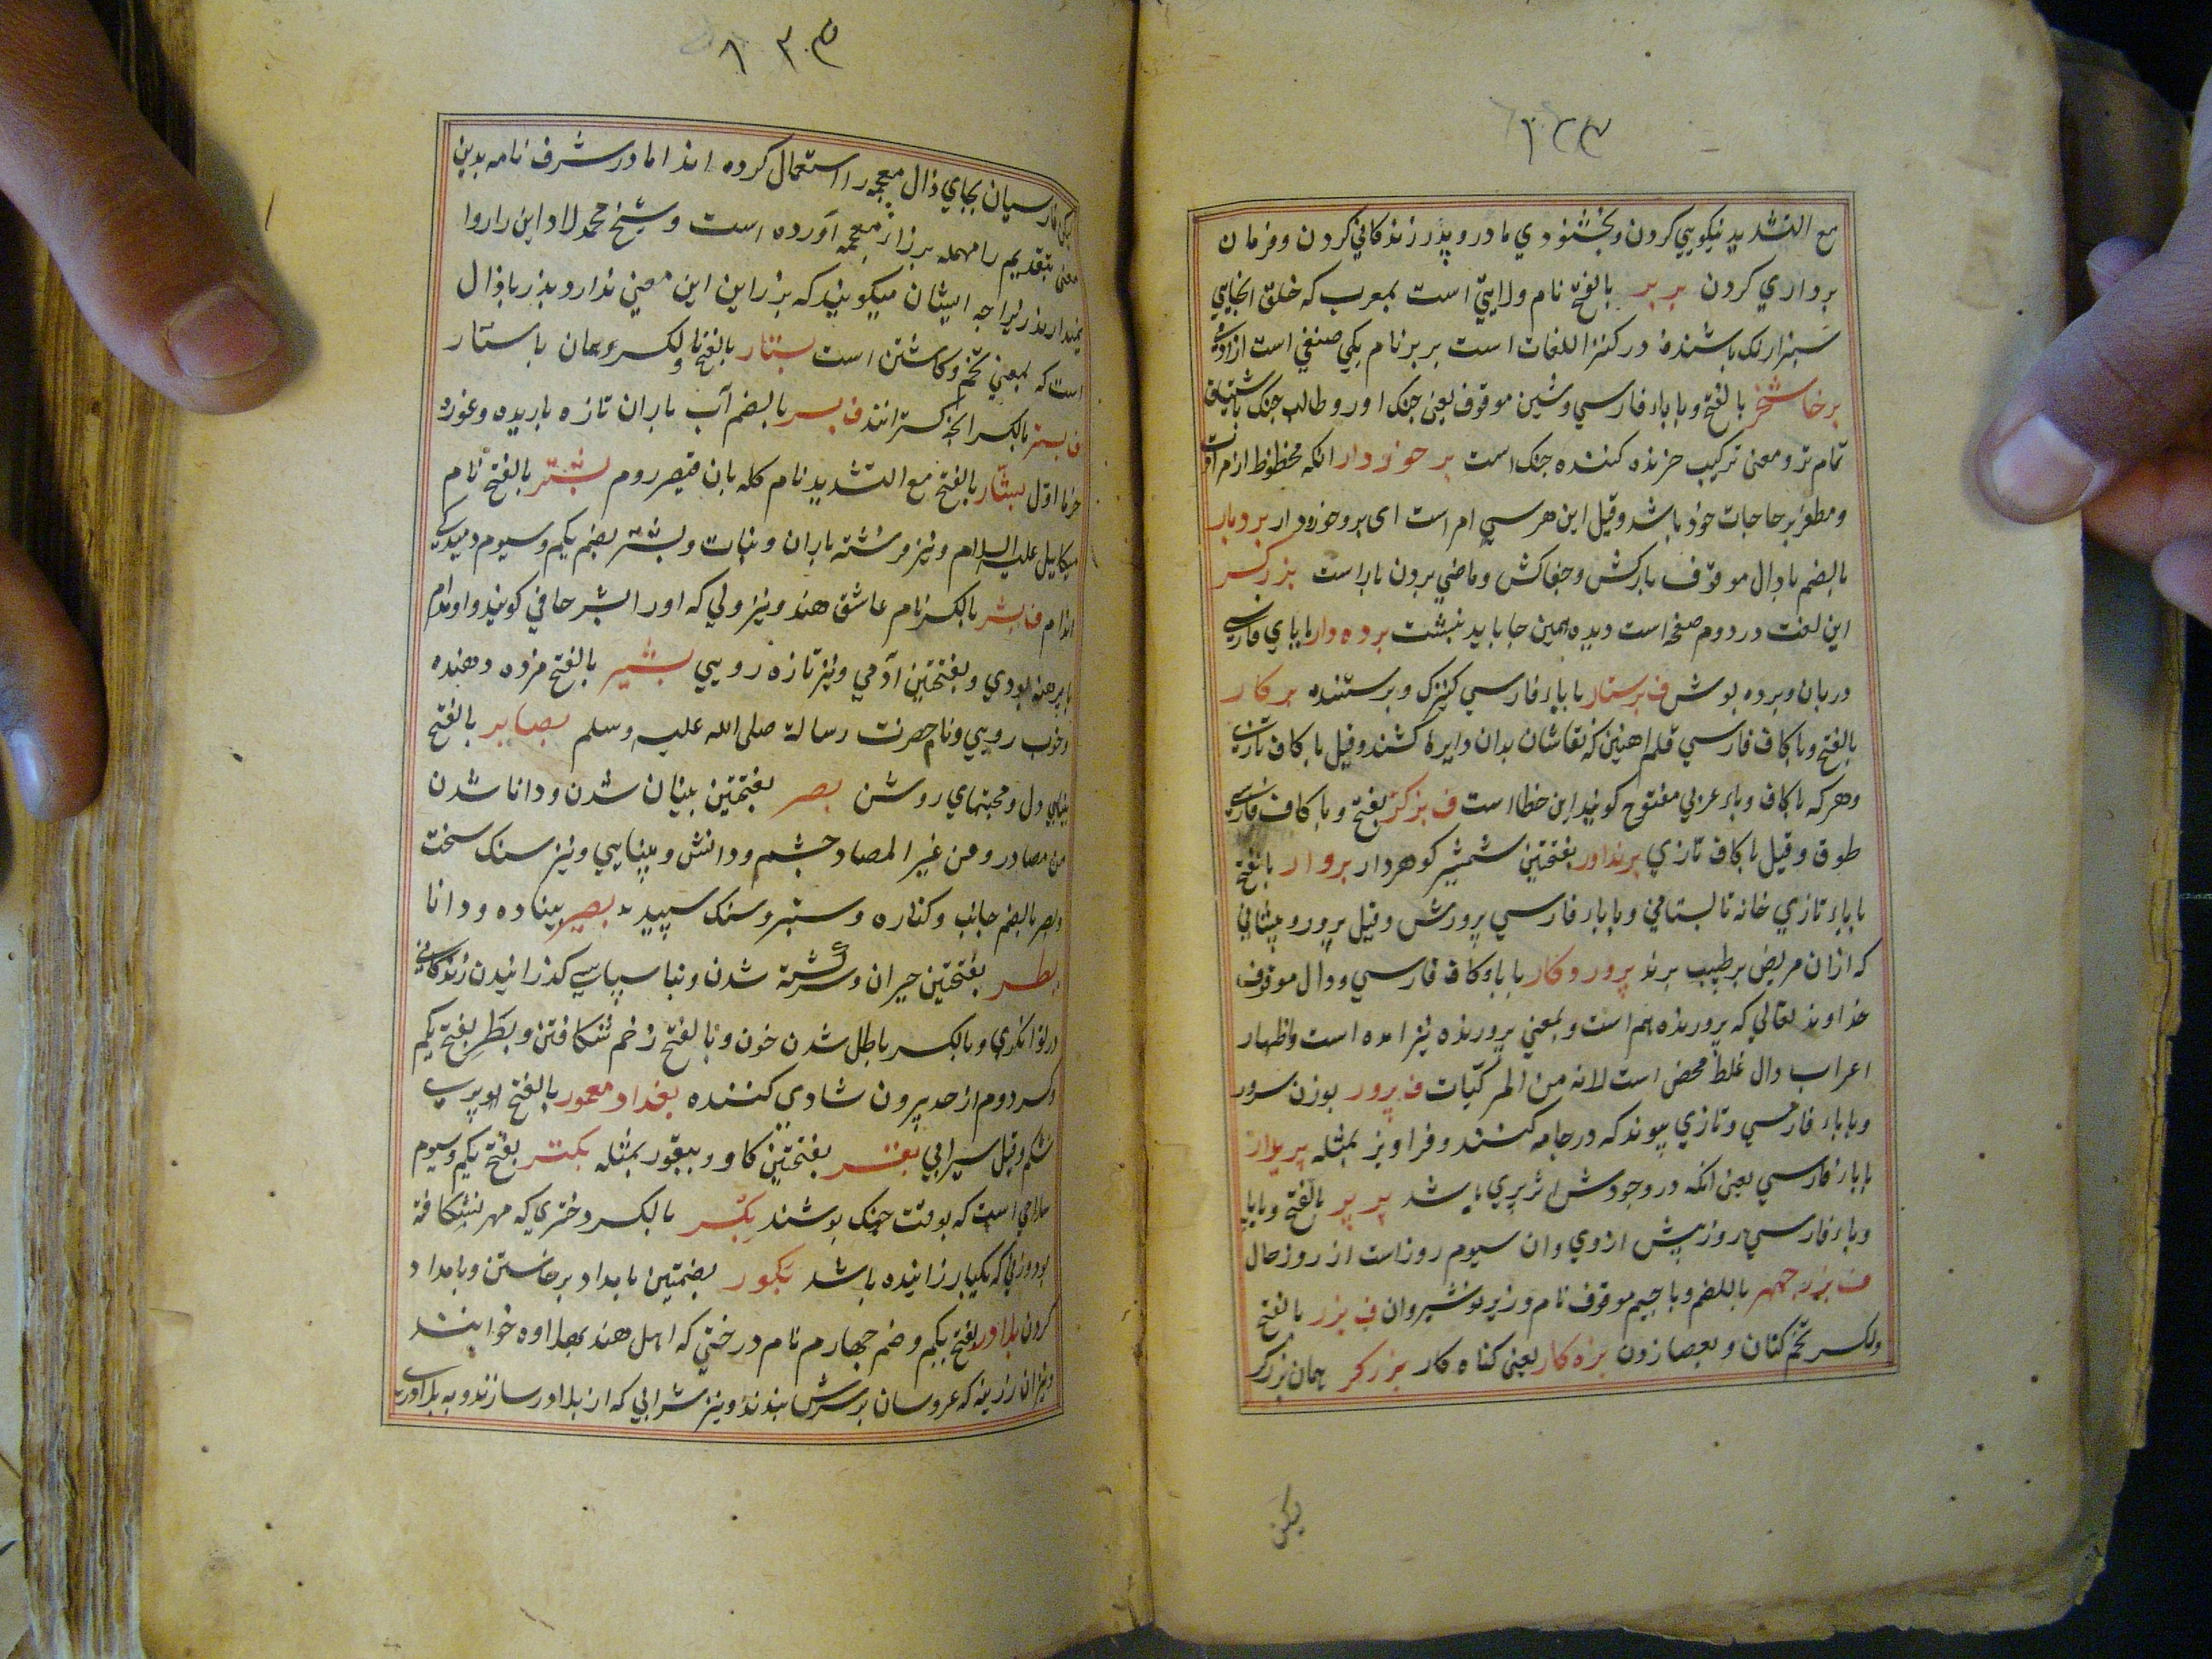 مع التشدید نیکویی کردن و بخشنودی مادر و پدر زندکانی کردن و فرمان
برداری کردن بربر بالفتح نام ولایتی است بمغرب که خلق انجایی
سبزارنک باشنده در کنز اللغات است بربر نام یکی صنفی است از
برخاشخر بالفتح و با باء فارسی و شین موقوف یعنی جنک اور و طالب جنک
تمام تر و معنی ترکیب خرنده کننده جنک است برخوردار انکه محظوظ از
و مطعر بر حاجات خود باشد و قیل این هر سی ام است ای بر و خور و دار بردبار
بالضم با دال موقوف بارکش و جفاکش و ماضی بردن بار است بزرکر
این لغت در دوم صفحه است دیده همین جا باید نبشت برده دار با بای فارسی
دربان و برده بوش ف برستار با باء فارسی کنیزک و برستنده برکار
بالفتح و با کاف فارسی قلم اهنین که نقاشان بدان دایره کشند و قیل با کاف تازی
و هرکه با کاف و باء عربی مفتوح کویند این خطا است ف بزکر بفتح و با کاف فارسی
طوق و قیل با کاف تازی برنداور بفتحتین شمشیر کوهردار بروار بالفتح
با باء تازی خانه تابستانی و با باء فارسی پرورش و قیل پرور و
که ازان مریض بر طبیب برند پروردکار با با و کاف فارسی و دال موقوف
خداوند تعالی که پرورنده هم است و بمعنی پرورنده نیز امده است و اظهار
اعراب دال غلط محض است لانه من المرکبات ف پرور بوزن سرور
و با باء فارسی و تازی پیوند که در جامه کنند و فراویز بمثله پریوار
با باء فارسی یعنی انکه در وجودش اثر پری باشد پرپر بالفتح و با با
و باء فارسی روز پیش ازوی و ان سیوم روز است از روز حال
ف بزرجمهر بالضم و با جیم موقوف نام وزیر نوشیروان ف بزر بالفتح
و لکسر تخم کتان و بعصا زدن بزه کار یعنی کناه کار بزرکر همان بزرکر
لیکن
لیکن فارسیان بجای ذال معجمه را استعمال کرده اند اما در شرف نامه بدین
معنی بتقدیم را مهمله بر زاء معجمه آورده است و شیخ محمد لاد این را روا
نمیدارند زیراچه ایشان میکویند که بزر این این معنی ندارد بذر با ذال
است که بمعنی تخم و کاشتن است بستار بالفتح و لکسر همان باستار
ف بستر بالکسر انچه کسترانند ف بسر بالضم آب باران تازه باریده و غوره
خرما اول بشار بالفتح مع التشدید نام کله بان قیصر روم بشتر بالفتح نام
میکاییل علیه السلام و نیز فرشته باران و نبات و بشتر بضم یکم و سیوم
اندام ف بشر بالکسر نام عاشق هند و نیز ولی که او را بشر حافی کویند و او مدام
پا برهنه بودی و بفتحتین آدمی و نیز تازه رویی بشیر بالفتح مژده دهنده
و خوب رویی و نام حضرت رسالة صلی الله علیه و سلم بصایر بالفتح
بینایی دل و محبتهای روشن بصر بفتحتین بینان شدن و دانا شدن
من مصادر و من غیر المصادر چشم و دانش و بینایی و نیز سنک سخت
و بصر بالضم جانب و کناره و ستبر و سنک سپید بصیر بیناده و دانا
بطر بفتحتین حیران و سرکشته شدن و ناسپاسی کذرانیدن زندکانی
در توانکری و بالکسر باطل شدن خون و بالفتح زخم شکافتن و بطر بفتح یکم
و کسر دوم از حد بیرون شادی کننده بغداد معمور بالفتح
شکم و قیل سیرابی بقر بفتحتین کاو و بیقور بمثله بکتر بفتح یکم و سیوم
سلاحی است که بوقت جنک بوشند بکر بالکسر دختری که مهر نشکافته
بود و زنی که یکبار زائیده باشد بکور بضمتین بامداد برخاستن و بامداد
کردن بلادور بفتح یکم و ضم چهارم نام درختی که اهل هند بهلاوه خوانند
و نیز ان زرینه که عروسان بر سرش بندند و نیز شرابی که از بلادور سازند